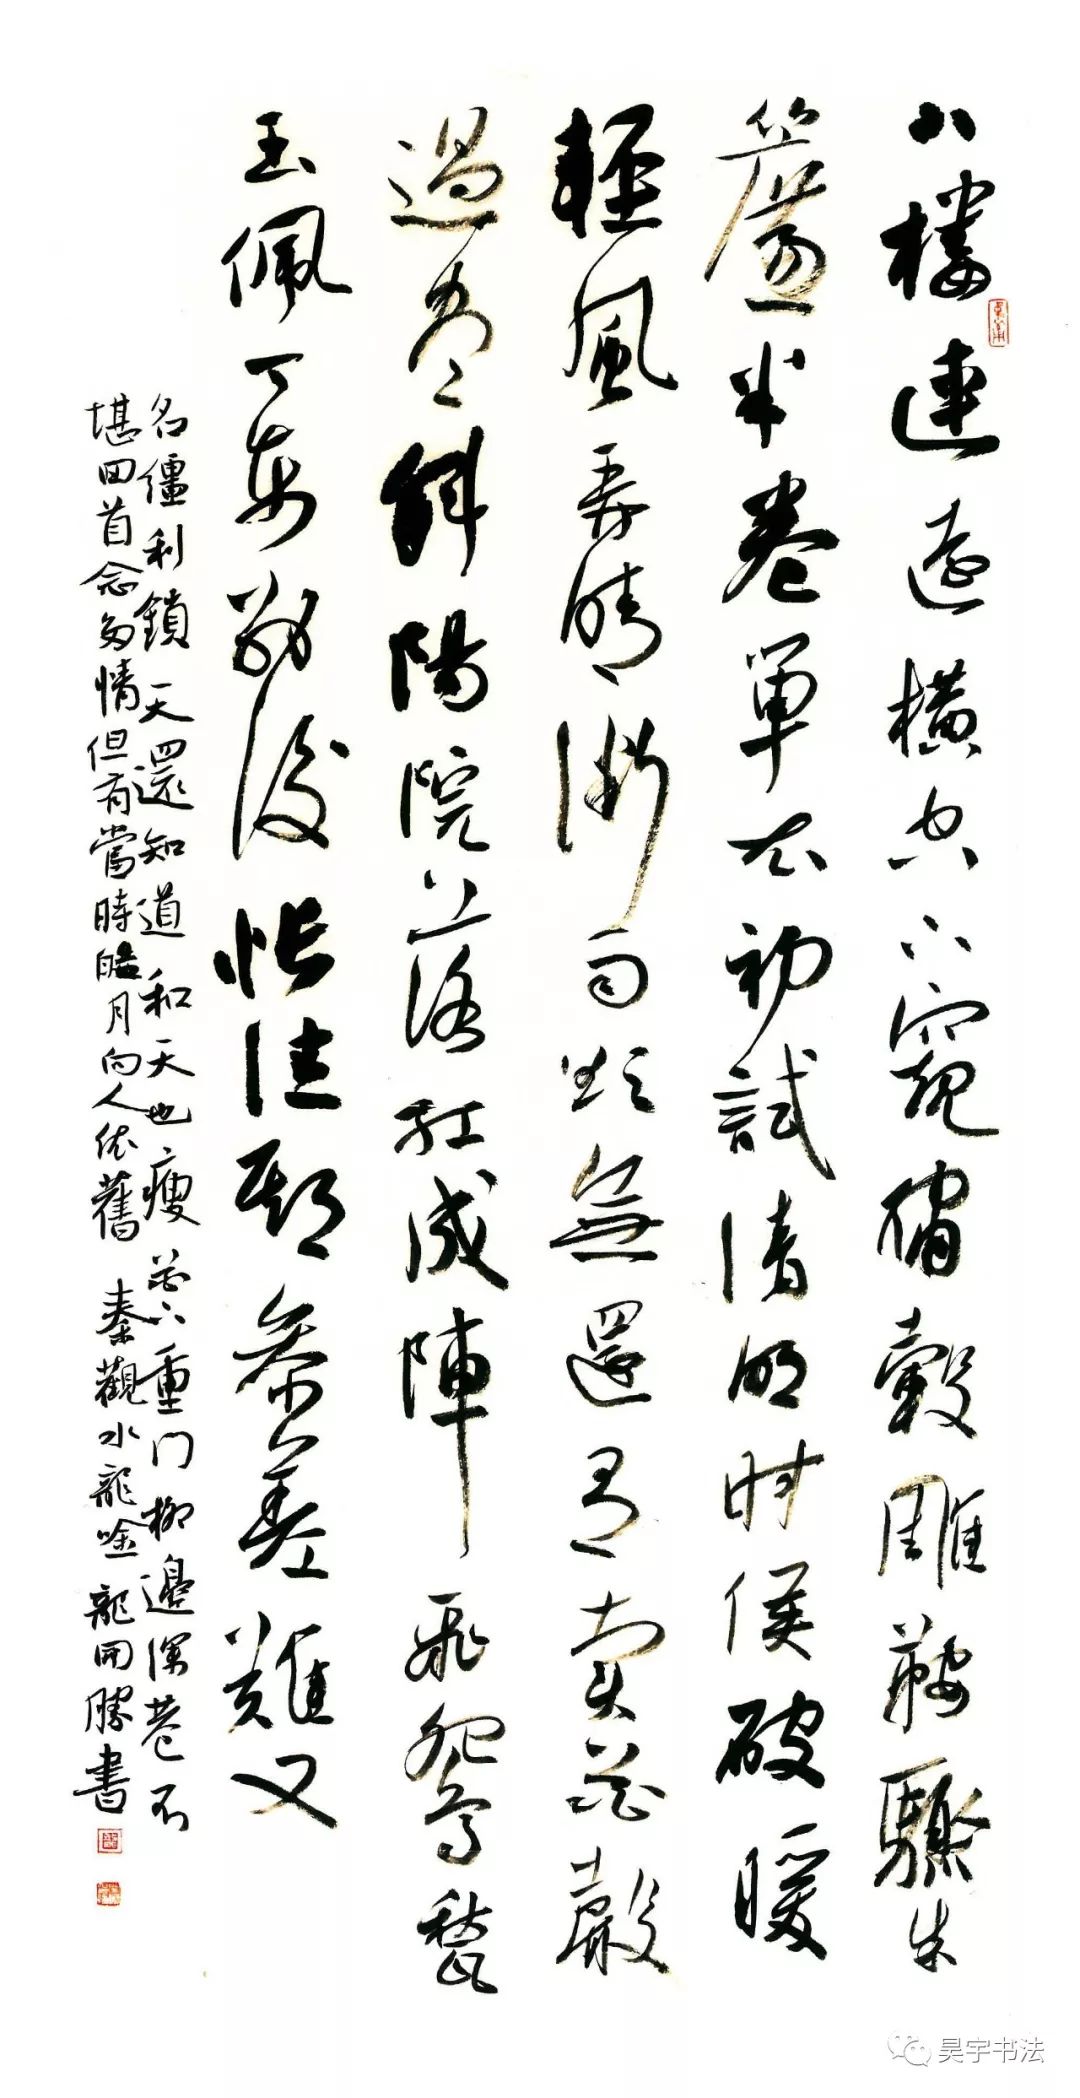 小樓連遠橫空下窺繡轂雕鞍驟朱
簾半卷單衣初試清明時候破暖
輕風弄晴微雨欲無還有賣花聲
過盡斜陽院落紅成陣飛鴛甃
玉佩丁東別後悵佳期參差難又
名韁利鎖天還知道和天也瘦花下重門柳邊深巷不
堪回首念多情但有當時皓月向人依舊 秦觀水龍吟 龍開勝書
昊宇书法